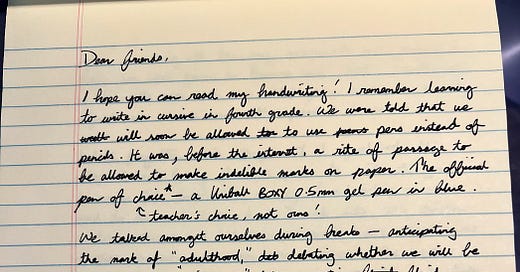 Dear friends,
I hope you can read my handwriting! I remember learning
to write in cursive in fourth grade. We were told that we
will soon be allowed to use pens instead of
pencils. It was, before the internet, a rite of passage to
be allowed to make indelible marks on paper. The official
pen of choice* — a Uniball BOXY 0.5mm gel pen in blue.
teacher's choice, not ours!
We talked amongst ourselves during breaks — anticipating
the mark of "adulthood," deb debating whether we will be